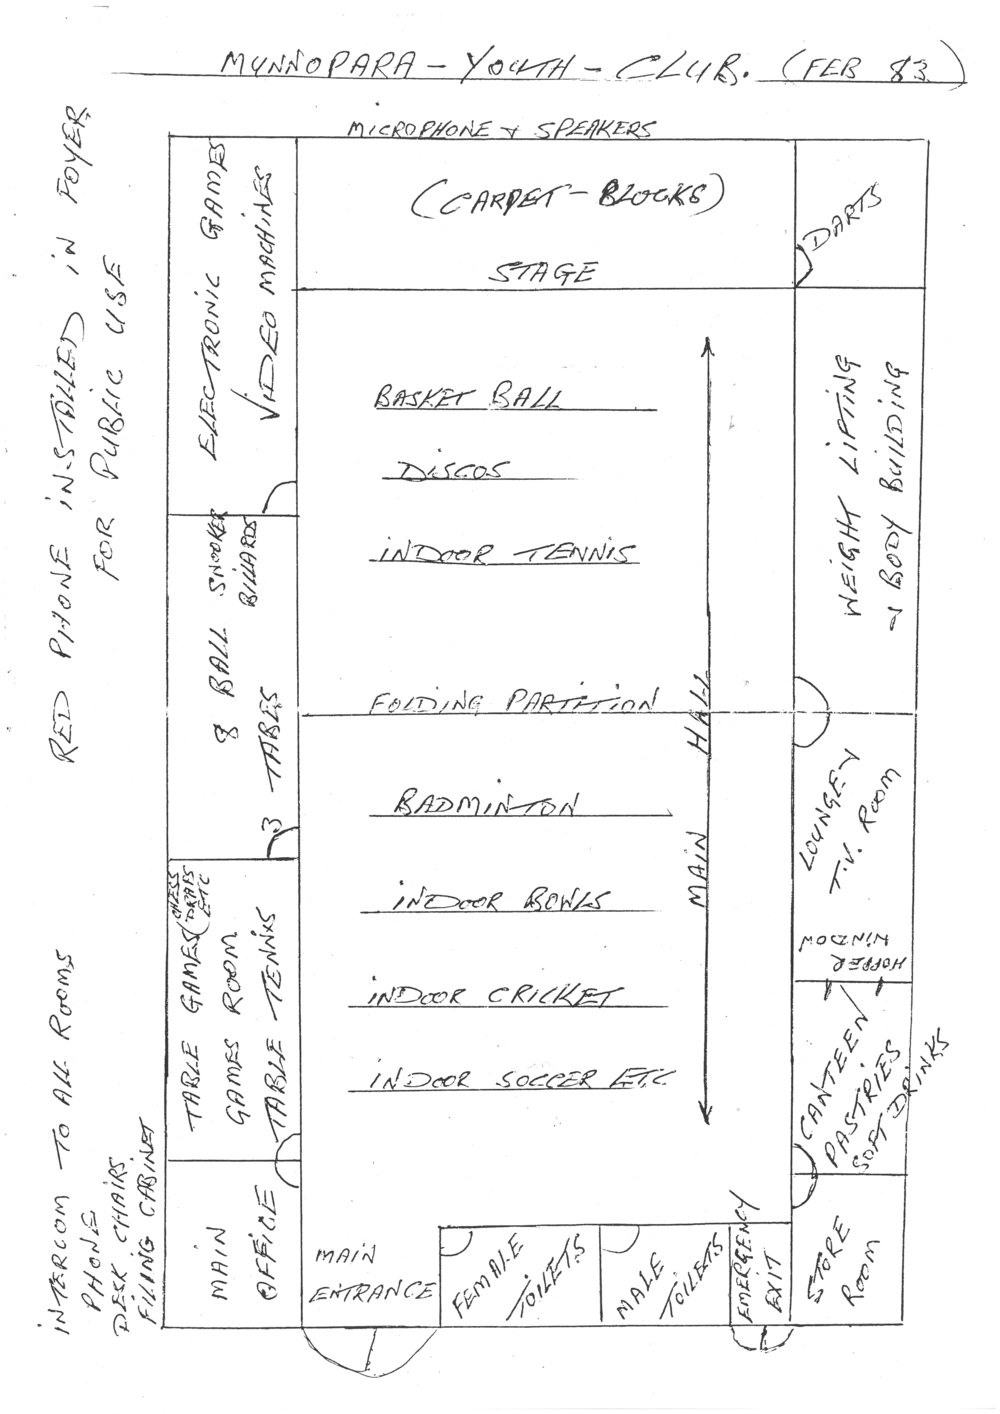 MUNNOPARA - YOUTH - CLUB. (FEB 83)
MICROPHONE & SPEAKERS
(CARPET - BLOCKS)
STAGE
DARTS
RED PHONE INSTALLED IN FOYER
FOR PUBLIC USE
ELECTRONIC GAMES
VIDEO MACHINES
BASKET BALL
DISCOS
INDOOR TENNIS
WEIGHT LIFTING
& BODY BUILDING
8 BALL SNOOKER
BILLARDS
3 TABLES
FOLDING PARTITION
MAIN HALL
BADMINTON
INDOOR BOWLS
INDOOR CRICKET
INDOOR SOCCER ETC
LOUNGE &
T.V. ROOM
HOPPER
WINDOW
CANTEEN/
PASTRIES
SOFT DRINKS
TABLE GAMES (CHESS
DRAFS
ETC
GAMES ROOM
TABLE TENNIS
INTERCOM TO ALL ROOMS
PHONE
DESK CHAIRS
FILING CABINET
MAIN
OFFICE
MAIN
ENTRANCE
FEMALE
TOILETS
MALE
TOILETS
EMERGENCY
EXIT
STORE
ROOM